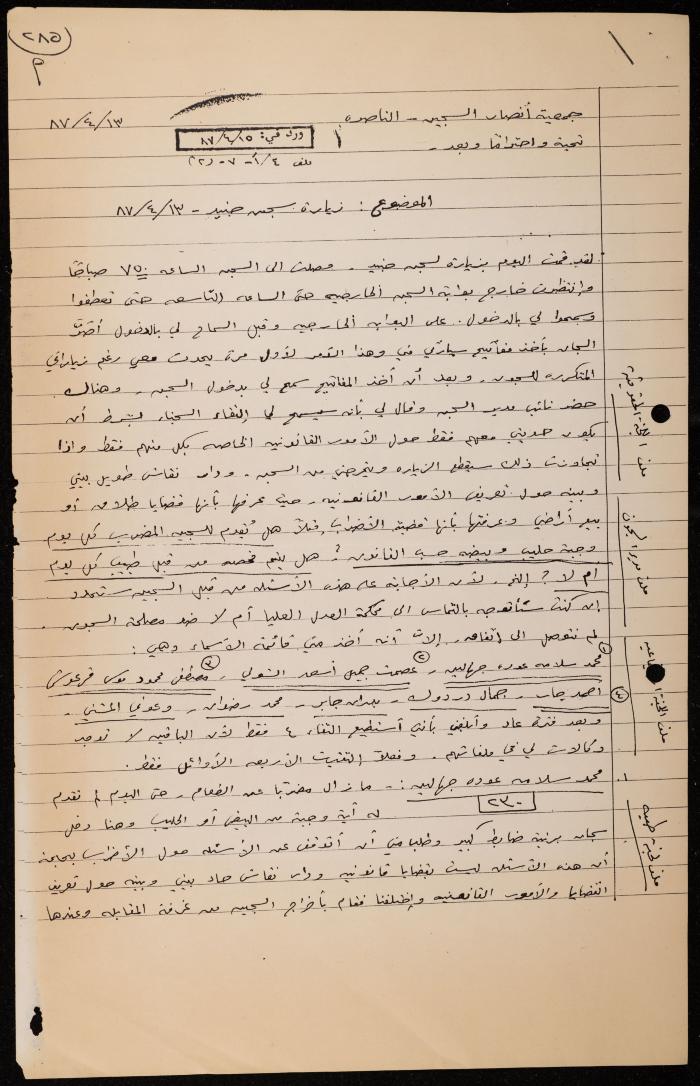 ٢٨٥
م
جمعية أنصار السجين - الناصره
٨٧/٤/١٣
تحية واحتراما وبعد -
ورد في: ٨٧/٤/١٥
ملف ٤/أ - ٧ - (٢)
الموضوع: زيارة سجن جنيد - ٨٧/٤/١٣
لقد قمت اليوم بزيارة لسجن جنيد. وصلت الى السجن الساعه صباحًا
وانتظرت خارج بوابة السجن الخارجيه حتى الساعه التاسعه حتى تعطفوا
وسمحوا لي بالدخول. على البوابه الخارجيه وقبل السماح لي بالدخول أصرّ
السجان بأخذ مفاتيح سيارتي مني وهذا الأمر لأول مرة يحدث معي رغم زياراتي
المتكرره للسجون. وبعد أن أخذ المفاتيح سمح لي بدخول السجن. وهناك
حضر نائب مدير السجن وقال لي بأنه سيسمح لي التقاء السجناء بشرط أن
يكون حديثي معهم فقط حول الأمور القانونيه الخاصه بكل منهم فقط واذا
تجاوزت ذلك سيقطع الزياره ويخرجني من السجن. ودار نقاش طويل بيني
وبينه حول تعريف الأمور القانونيه، حيث عرفها بأنها قضايا طلاق أو
بيع أراضي وعرفتها بأنها قضية الأضراب مثلًا هل تُقدم للسجين المضرب كل يوم
وجبة حليب وبيضه حسب القانون؟ هل يتم فحصه من قبل طبيب كل يوم
أم لا؟ إلخ. لأن الأجابه على هذه الأسئله من قبل السجين ستحدد
إن كنت سأتوجه بالتماس الى محكمة العدل العليا أم لا ضد مصلحة السجون.
لم نتوصل الى اتفاق، إلا أنه أخذ مني قائمة الأسماء وهي:
محمد سلامه عوده جهالين، (٢) عصمت جميل أسعد الشولي، (٣) مصطفى محمود موسى قرعوش
(٤) أحمد جبارة، جمال دردوك، جابر، محمد رضوان، وعوني المشني.
وبعد فترة عاد وأبلغني بأنني أستطيع التقاء ٤ فقط لأن الباقين لا توجد
وكالات لي في ملفاتهم. وفعلًا إلتقيت الأربعه الأوائل فقط.
١. محمد سلامه عوده جهالين: - ما زال مضربًا عن الطعام، حتى اليوم لم تقدم
له أية وجبة من البيض أو الحليب وهنا دخل
٢٣٠
سجان برتبة ضابط كبير وطلب مني أن أتوقف عن الأسئله حول الأضراب بحجة
أن هذه الأسئله ليست بقضايا قانونيه ودار نقاش حاد بيني وبينه حول تعريف
القضايا والأمور القانونيه وإختلفنا فقام بأخراج السجين من غرفة المقابله وعندها
ملف اللجنة
ملف مدير السجن
ملف اللجنة
ملف لجنة طبيه